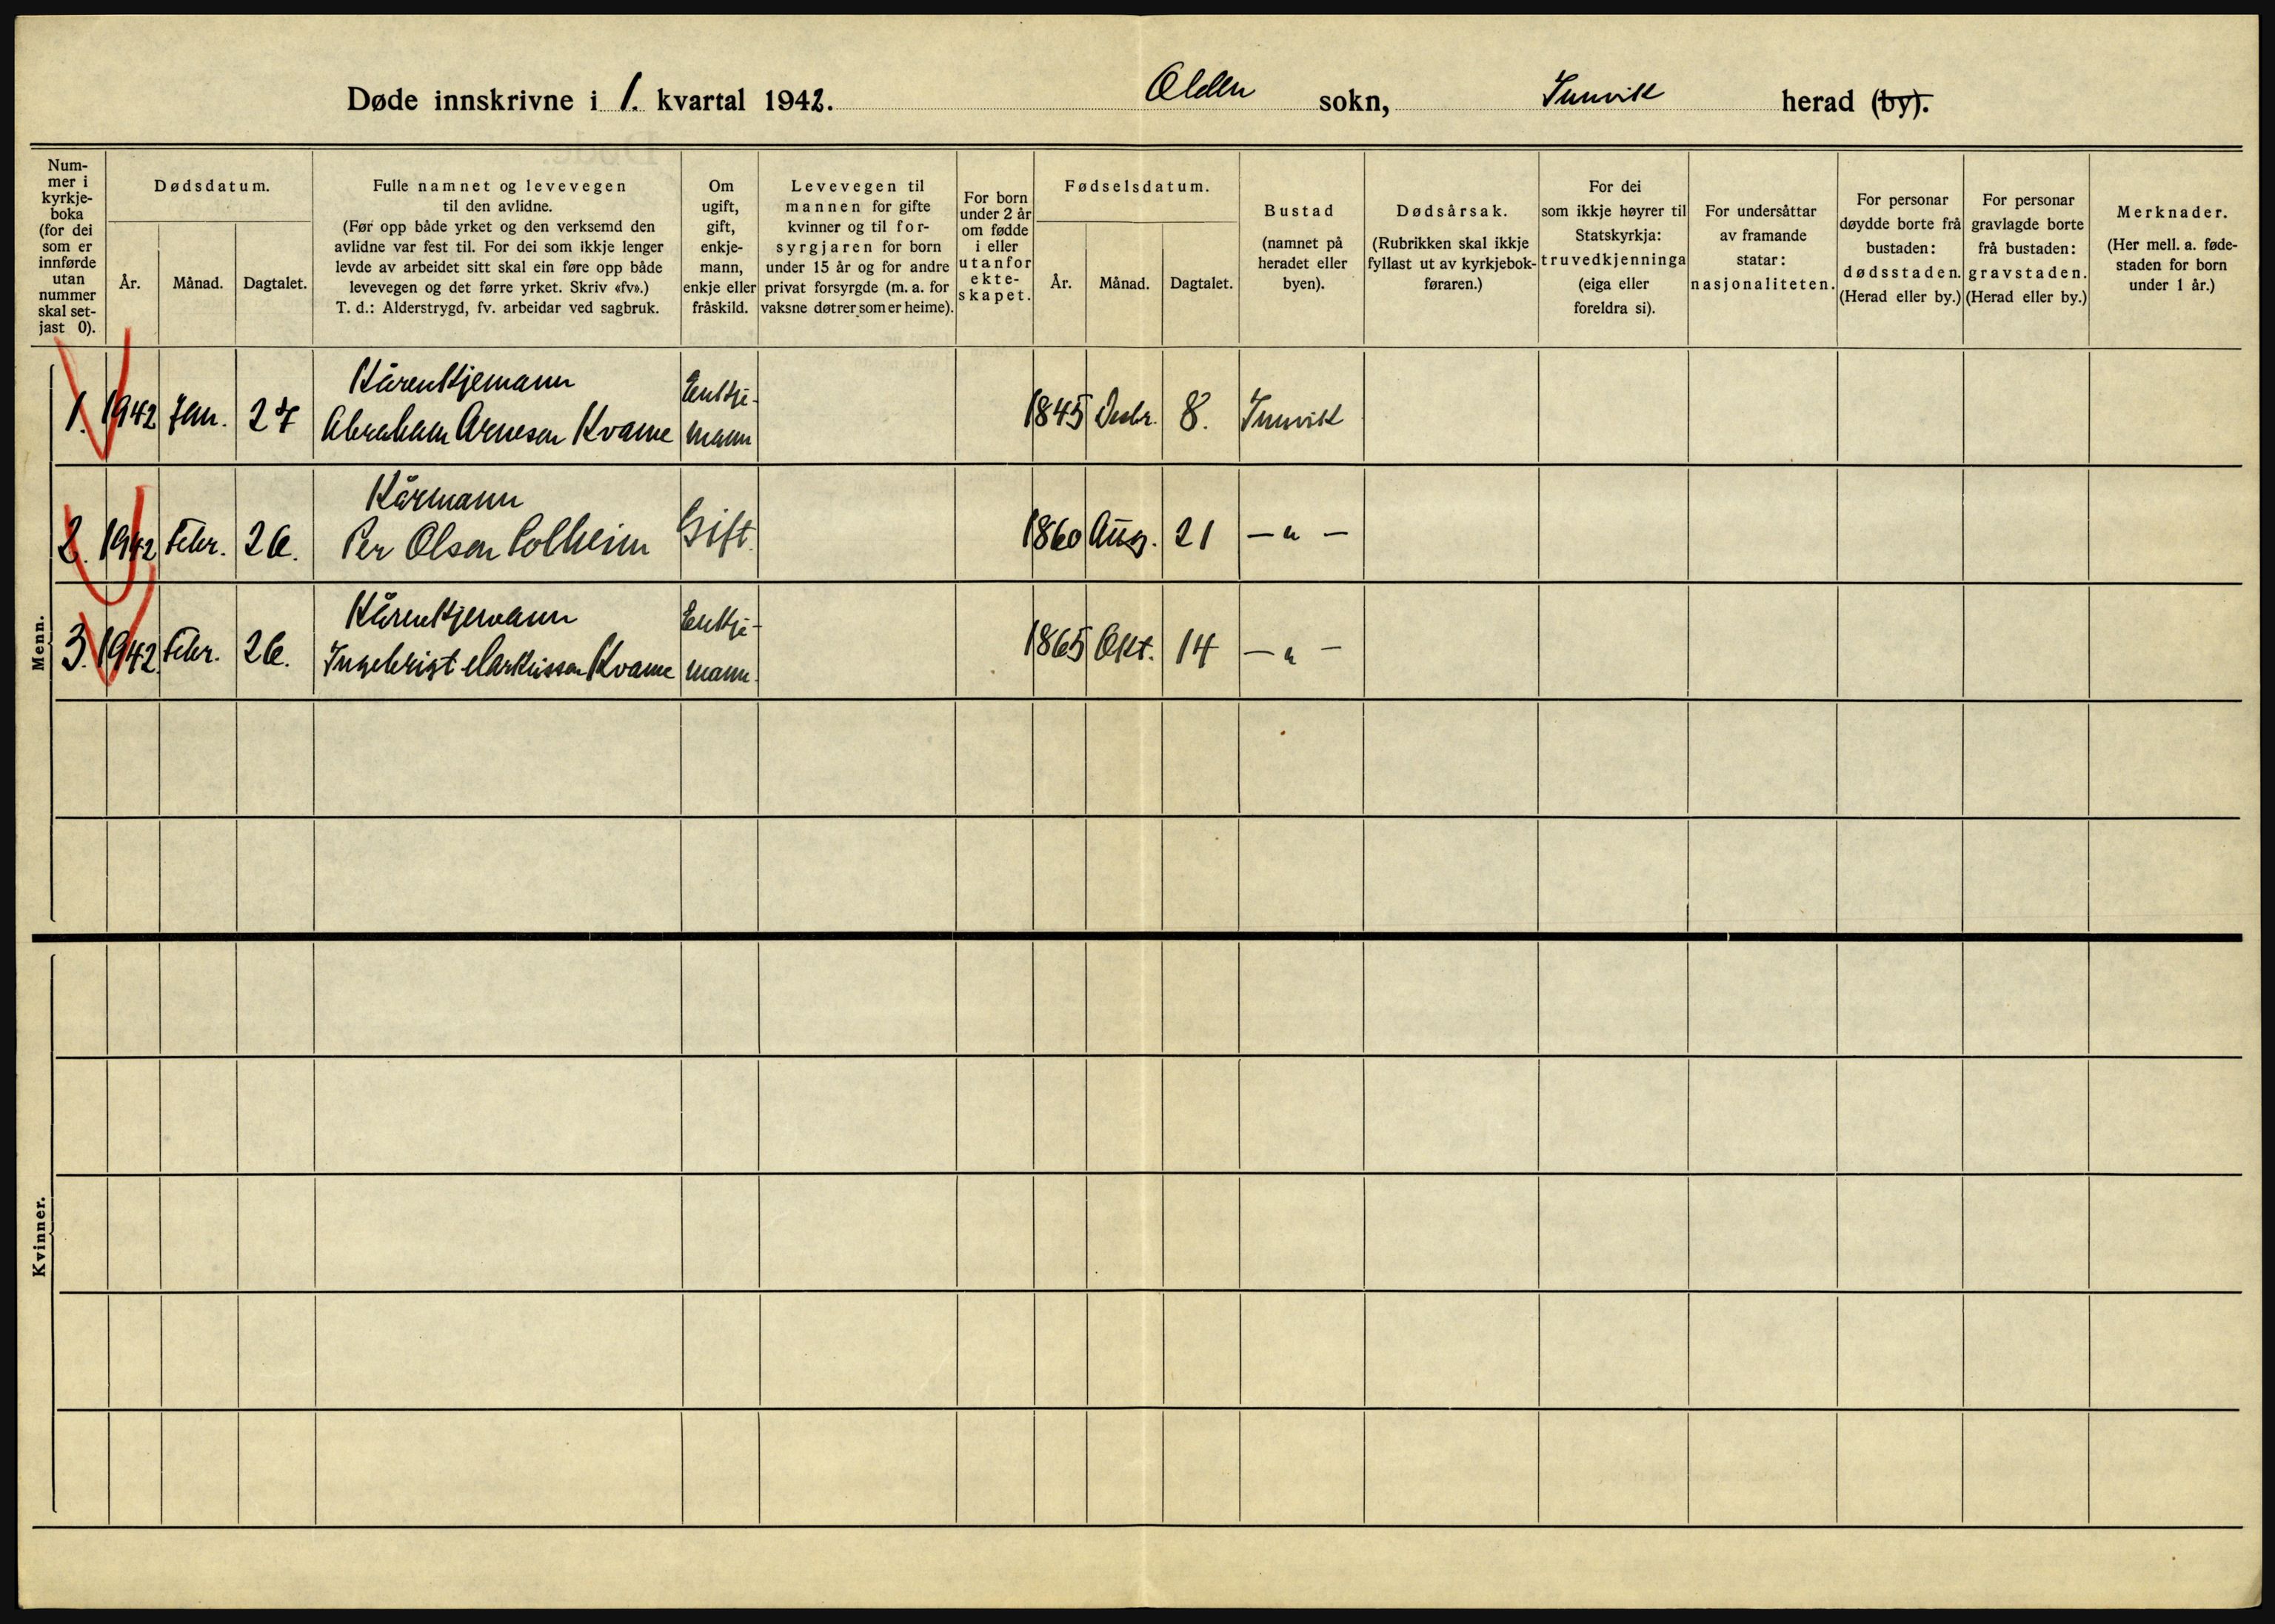 Døde innskrivne i 1. kvartal 1942. Olden sokn, Innvik herad (by).
Nummer i kyrkjeboka (for dei som er innførde utan nummer skal setjast 0).
Dødsdatum.
År. Månad. Dagtalet.
Fulle namnet og levevegen
til den avlidne.
(Før opp både yrket og den verksemd den
avlidne var fest til. For dei som ikkje lenger
levde av arbeidet sitt skal ein føre opp både
levevegen og det førre yrket. Skriv «fv».)
T. d.: Alderstrygd, fv. arbeidar ved sagbruk.
Om
ugift,
gift,
enkje-
mann,
enkje eller
fråskild.
Levevegen til
mannen for gifte
kvinner og til for-
syrgjaren for born
under 15 år og for andre
privat forsyrgde (m. a. for
vaksne døtrer som er heime).
For born
under 2 år
om fødde
i eller
utanfor
ekte-
skapet.
Fødselsdatum.
År. Månad. Dagtalet.
Bustad
(namnet på
heradet eller
byen).
Dødsårsak.
(Rubrikken skal ikkje
fyllast ut av kyrkjebok-
føraren.)
For dei
som ikkje høyrer til
Statskyrkja:
truvedkjenninga
(eiga eller
foreldra si).
For undersåttar
av framande
statar:
nasjonaliteten.
For personar
døydde borte frå
bustaden:
dødsstaden.
(Herad eller by.)
For personar
gravlagde borte
frå bustaden:
gravstaden.
(Herad eller by.)
Merknader.
(Her mell. a. føde-
staden for born
under 1 år.)
Menn.
Kårenkjemann
1. 1942 Jan. 27 Abraham Arnesen Kvame Enkje-mann 1845 Desbr. 8. Innvik
Kårmann
2. 1942 Febr. 26. Per Olsen Solheim Gift. 1860 Aug. 21 — " —
Kårenkjemann
3. 1942 Febr. 26. Ingebrigt Markusson Kvame Enkje-mann. 1865 Okt. 14 — " —
Kvinner.